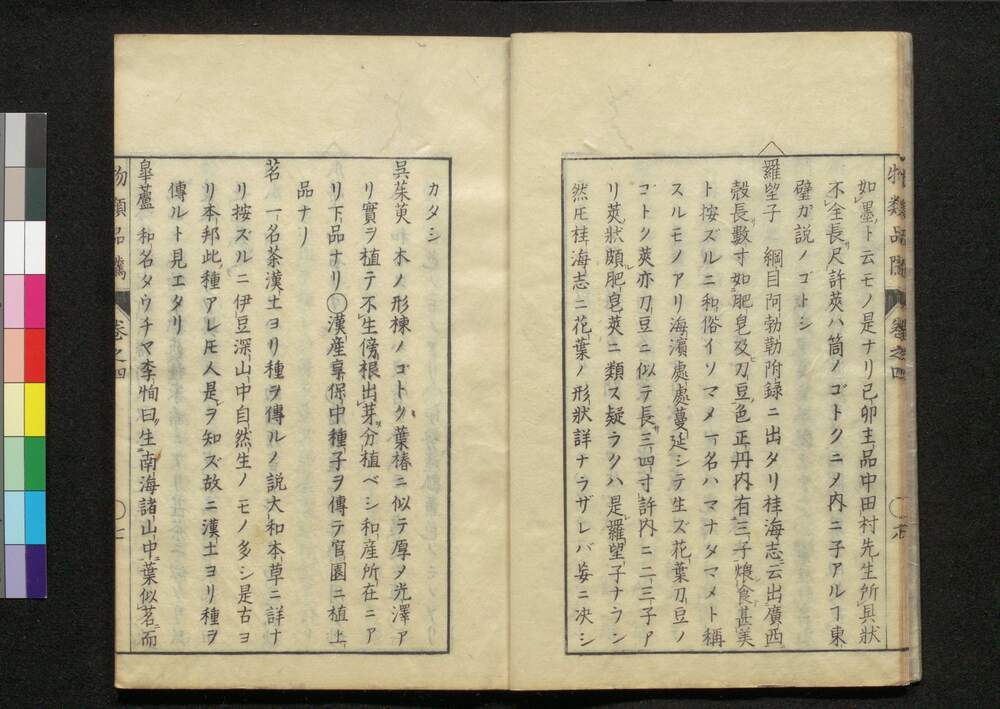 物類品隲 巻之四
如墨ト云モノ是ナリ己卯主品中田村先生所具状
不全長尺許莢ハ筒ノゴトクニメ内ニ子アルヿ東
璧ガ説ノゴトシ
羅望子 綱目阿勃勒附録ニ出タリ桂海志云出廣西
殻長數寸如肥皂及刀豆色正丹内有三子煨食甚美
ト按ズルニ和俗イソマメ一名ハマナタマメト稱
スルモノアリ海濱處處蔓延シテ生ズ花葉刀豆ノ
ゴトク莢亦刀豆ニ似テ長三四寸許内ニ二三子ア
リ莢狀頗肥皂莢ニ類ス疑ラクハ是羅望子ナラン
然𪜈桂海志ニ花葉ノ形狀詳ナラザレバ妄ニ决シ
カタシ
呉茱萸 和木ノ形楝ノゴトク葉椿ニ似テ厚メ光澤ア
リ實ヲ植テ不生傍根出芽分植ベシ和産所在ニア
リ下品ナリ〇漢産享保中種子ヲ傳テ官園ニ植上
品ナリ
茗 一名茶漢土ヨリ種ヲ傳ルノ説大和本草ニ詳ナ
リ按ズルニ伊豆深山中自然生ノモノ多シ是古ヨ
リ本邦此種アレ𪜈人是ヲ知ズ故ニ漢土ヨリ種ヲ
傳ルト見エタリ
皐蘆 和名タウチマ李恂曰生南海諸山中葉似茗而
物類品隲 巻之四